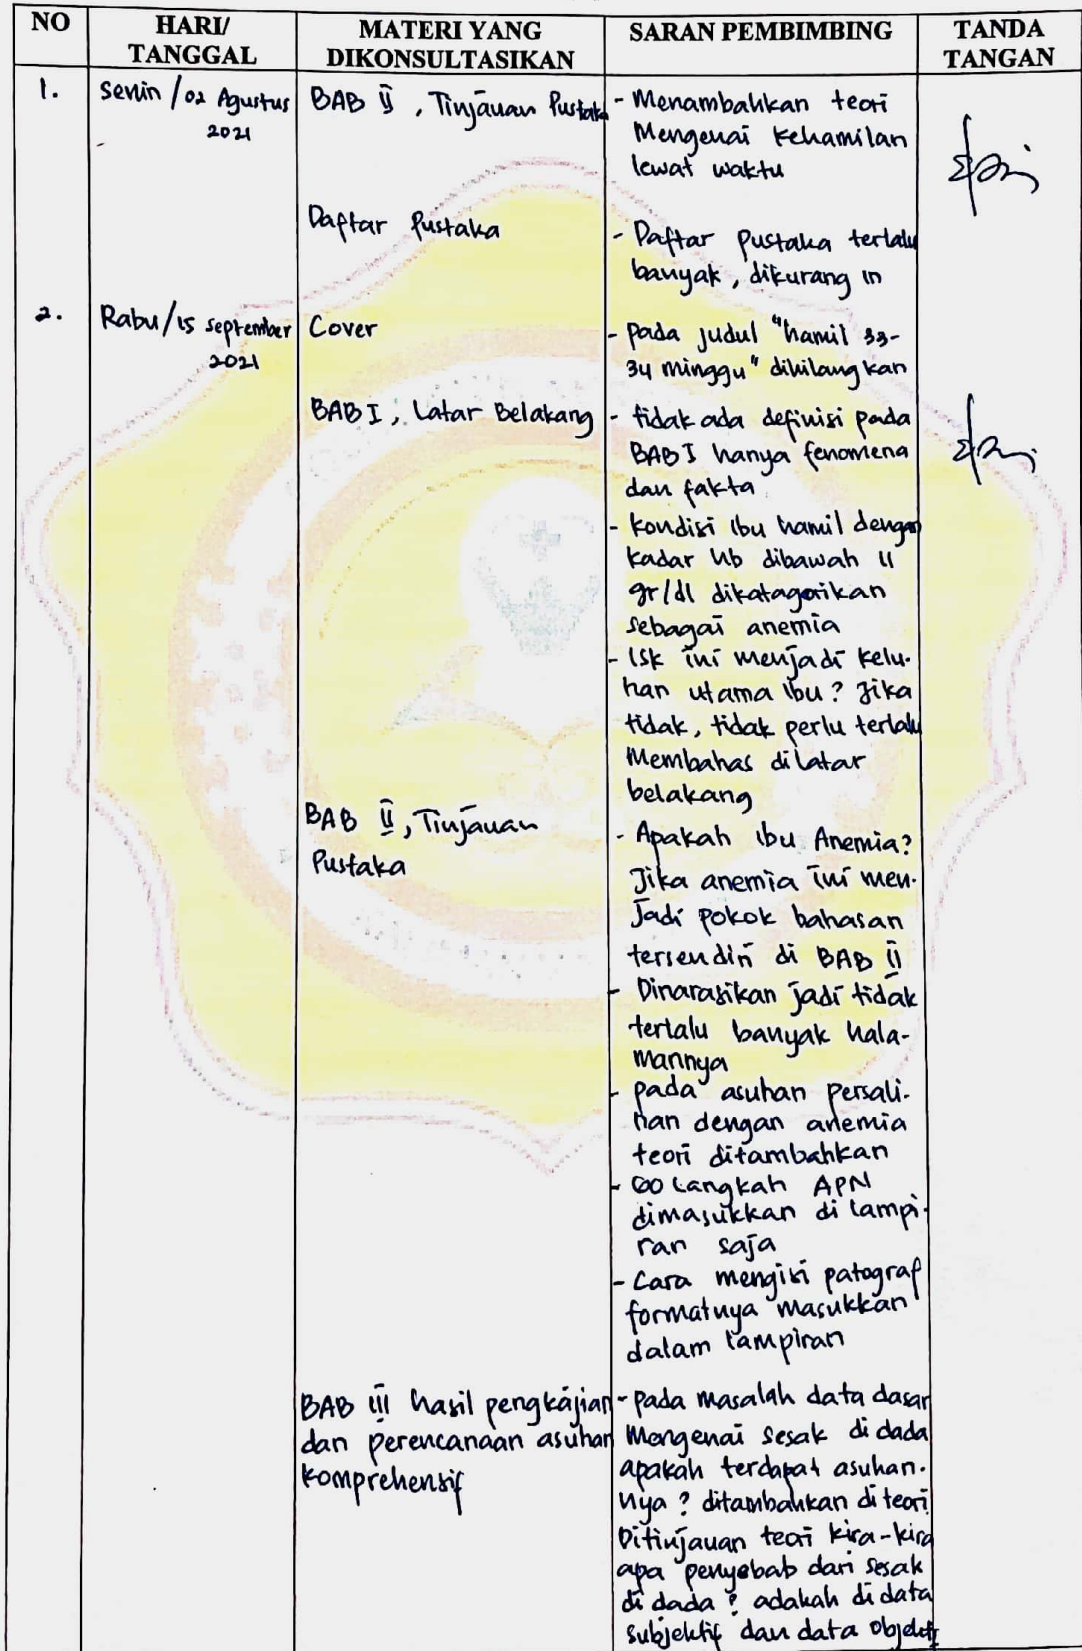 NO HARI/ MATERI YANG SARAN PEMBIMBING TANDA
TANGGAL DIKONSULTASIKAN TANGAN
1. Senin / 02 Agustus BAB II, Tinjauan Pustaka - Menambahkan teori
2021 Mengenai kehamilan
lewat waktu
Daftar Pustaka - Daftar pustaka terlalu
banyak, dikurang in
2. Rabu/15 September Cover - pada judul "hamil 33-
2021 34 minggu" dihilangkan
BAB I, Latar Belakang - tidak ada definisi pada
BAB I hanya fenomena
dan fakta
- kondisi ibu hamil dengan
kadar Hb dibawah 11
gr/dl dikatagorikan
sebagai anemia
- ISK ini menjadi kelu-
han utama ibu? Jika
tidak, tidak perlu terlalu
Membahas dilatar
belakang
BAB II, Tinjauan - Apakah ibu Anemia?
Pustaka Jika anemia ini men-
jadi pokok bahasan
tersendiri di BAB II
- Dinarasikan jadi tidak
terlalu banyak hala-
mannya
- pada asuhan persali-
nan dengan anemia
teori ditambahkan
- 60 Langkah APN
dimasukkan di lampi-
ran saja
- Cara mengisi patograf
formatnya masukkan
dalam lampiran
BAB III hasil pengkajian - pada masalah data dasar
dan perencanaan asuhan Mengenai sesak di dada
komprehensif apakah terdapat asuhan-
nya? ditambahkan di teori
Ditinjauan teori kira-kira
apa penyebab dari sesak
di dada? adakah di data
subjektif dan data objektif